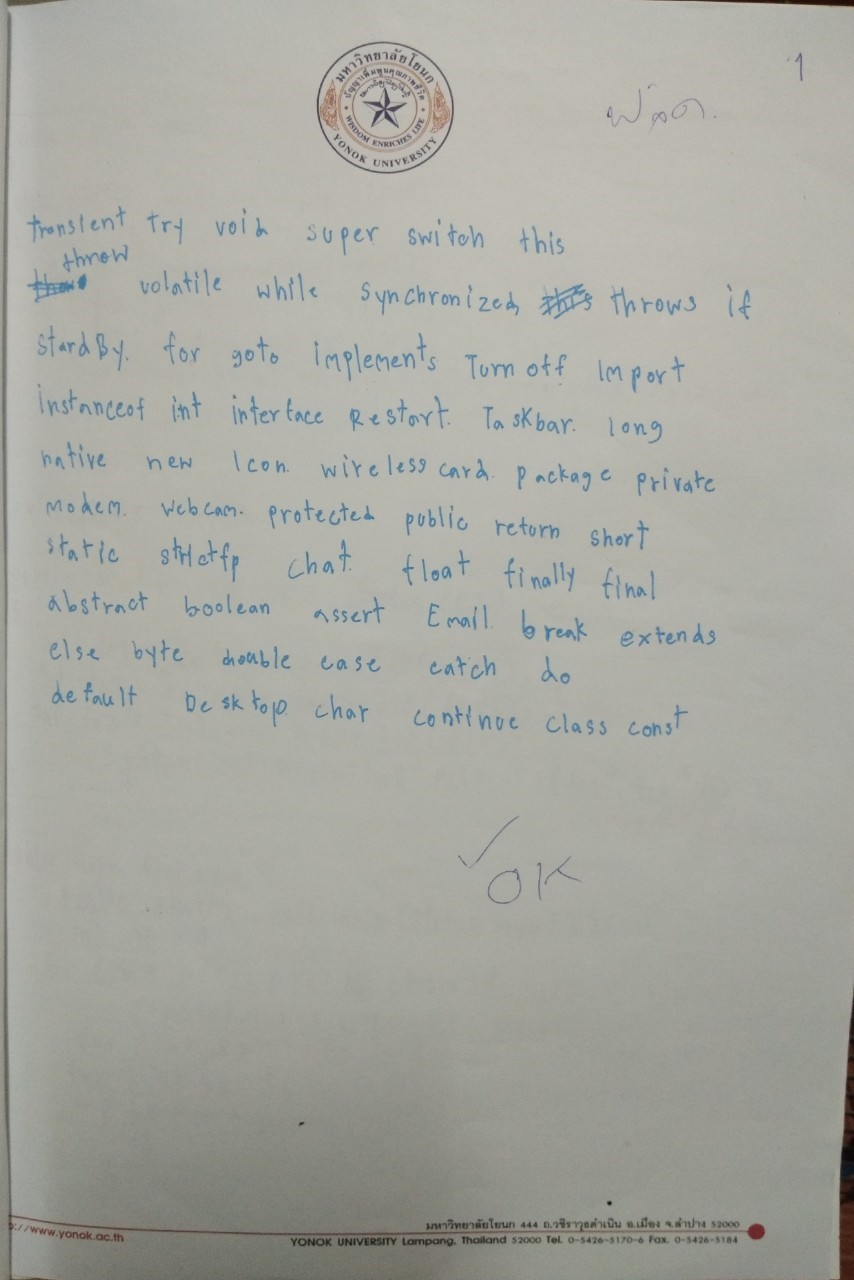 1
มหาวิทยาลัยโยนก
ปัญญาเพิ่มพูนคุณภาพชีวิต
WISDOM ENRICHES LIFE
YONOK UNIVERSITY
translent try void super switch this
throw
volatile while synchronized throws if
standBy. for goto implements Turn off Import
instanceof int interface Restart. Taskbar. long
native new Icon. wireless card. package private
modem. webcam. protected public return short
static strictfp chat. float finally final
abstract boolean assert Email. break extends
else byte double case catch do
default Desktop. char continue class const
✓
OK
มหาวิทยาลัยโยนก 444 ถ.วชิราวุธดำเนิน อ.เมือง จ.ลำปาง 52000
://www.yonok.ac.th
YONOK UNIVERSITY Lampang, Thailand 52000 Tel. 0-5426-5170-6 Fax. 0-5426-5184